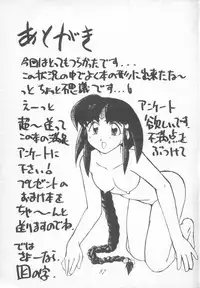 あとがき
今回はとってもつらかたです・・・
この状況の中でよく本の形に出来たな〜
っと ちょっと不思議です・・・!
えーっと
この本の満足
アンケートに
下さい!
プレゼントの
おまけ本を
ちゃ〜んと
送りますのでね
では
さよーなら
アンケート
欲しいです
不満点を
ぶつけて
37